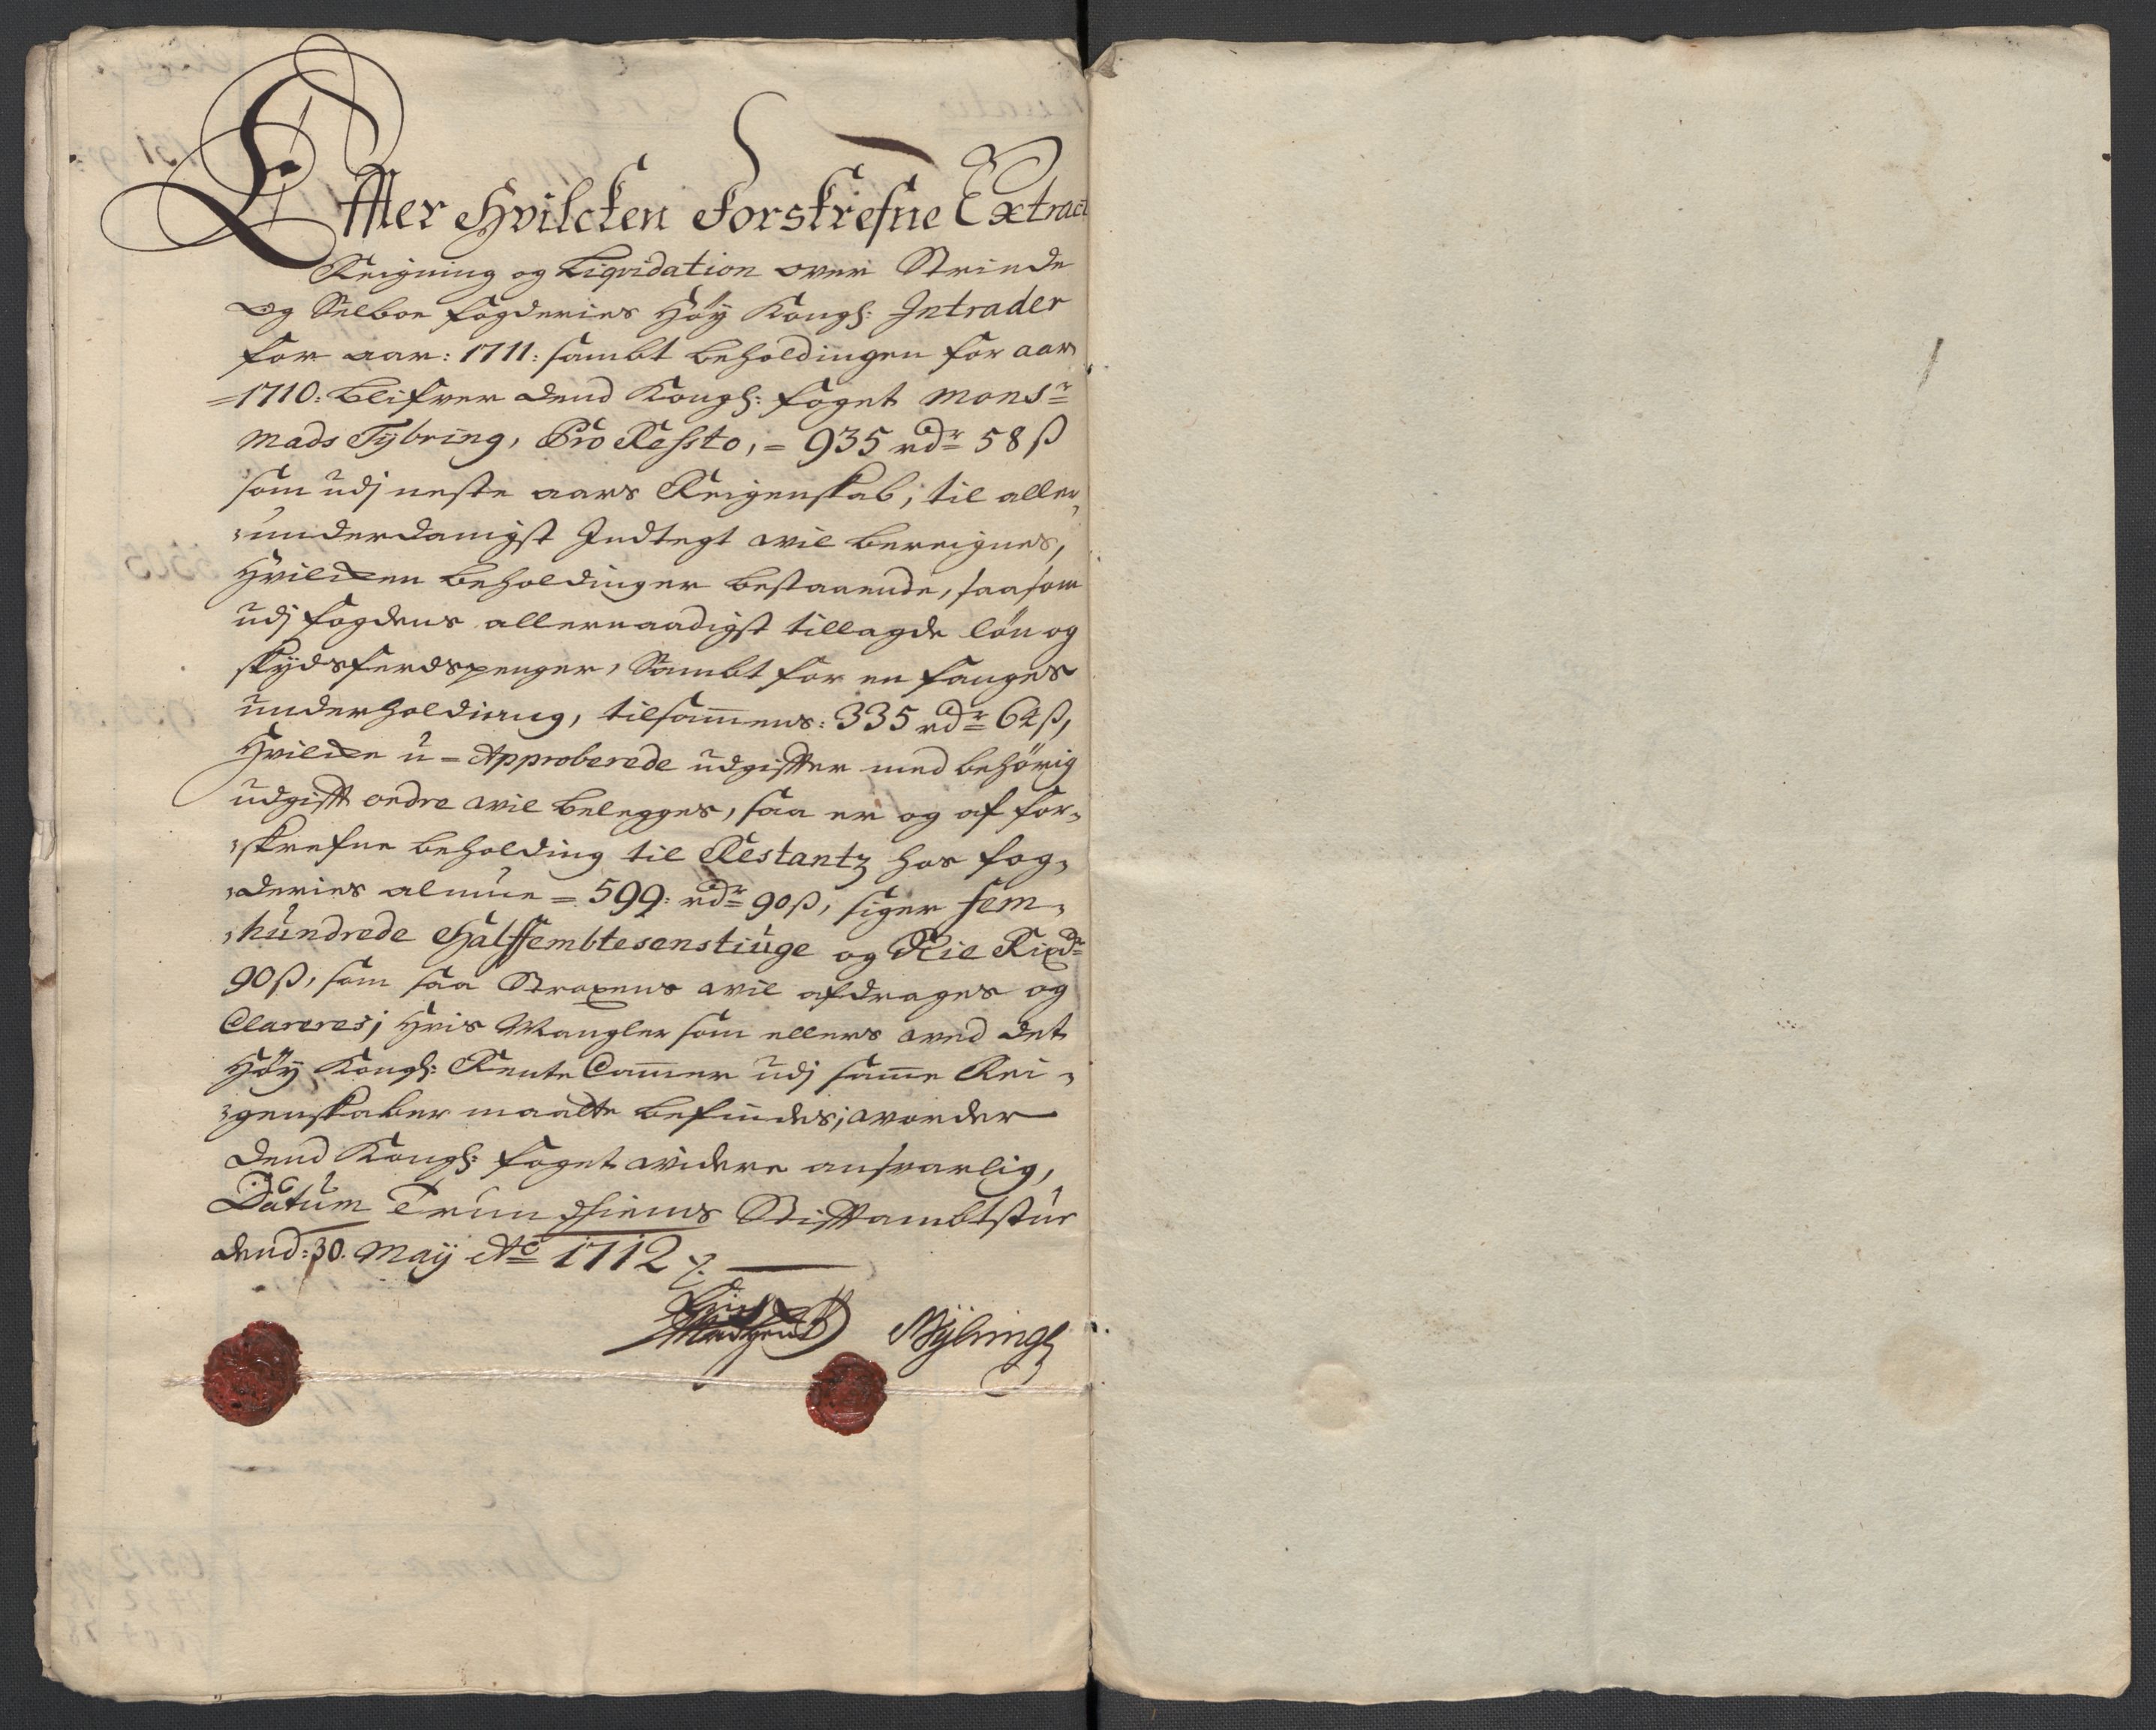 Effter Hvilcken Forskrefne Extract
Reigning og Liqvidation over Strinde
og Selboe fogderies Höÿ Kongl: Intrader
for aar: 1711: sambt beholdingen for aar
=1710: blifver dend Kongl: foget Monsr
Mads Tÿbring, Pro Ressto, = 935 rdr 58 ß
som udj neste aars Reigenskab, til aller„
„underdanigst Indtegt vil bereignes,
Hvilcken beholdinger bestaaende, saasom
udj fogdens allernaadigst tillagde lön og
skÿdsferdspenger, Sambt for en fanges
underholding, tilsammens: 335 rdr 64 ß,
Hvilcke u=Approberede udgiffter med behörig
udgifft ordre vil belegges, saa er og af for„
„skrefne beholding til Restantz hos fog„
„deries almue = 599: rdr 90 ß, siger fem„
„hundrede Halffembtesenstiuge og Nie Rixdr
90 ß, som saa Straxens vil afdrages og
Clareres; Hvis Mangler som ellers ved det
Höÿ Kongl: Rente Cammer udj samme Rei„
„genskaber maatte befindes, vorder
dend Kongl: foget videre ansvarlig,
Datum Trundhiems Stifftambtstue
dend: 30. Maÿ Ao 1712 ⁒
MTÿbring